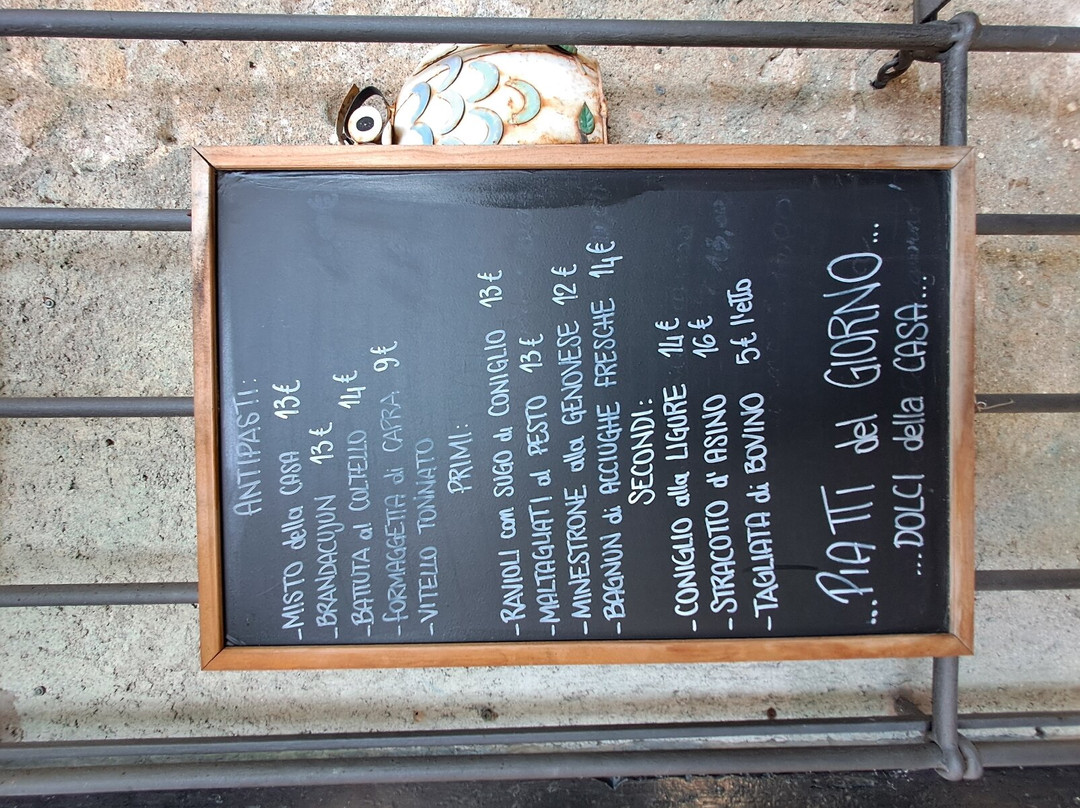 ANTIPASTI:
-MISTO della CASA 13€
-BRANDACUJUN 13€
-BATTUTA al COLTELLO 14€
-FORMAGGETTA di CAPRA 9€
-VITELLO TONNATO
PRIMI:
-RAVIOLI con SUGO di CONIGLIO 13€
-MALTAGLIATI al PESTO 13€
-MINESTRONE alla GENOVESE 12€
-BAGNUN di ACCIUGHE FRESCHE 14€
SECONDI:
-CONIGLIO alla LIGURE 14€
-STRACOTTO d'ASINO 16€
-TAGLIATA di BOVINO 5€ l'etto
...PIATTI del GIORNO...
...DOLCI della CASA...